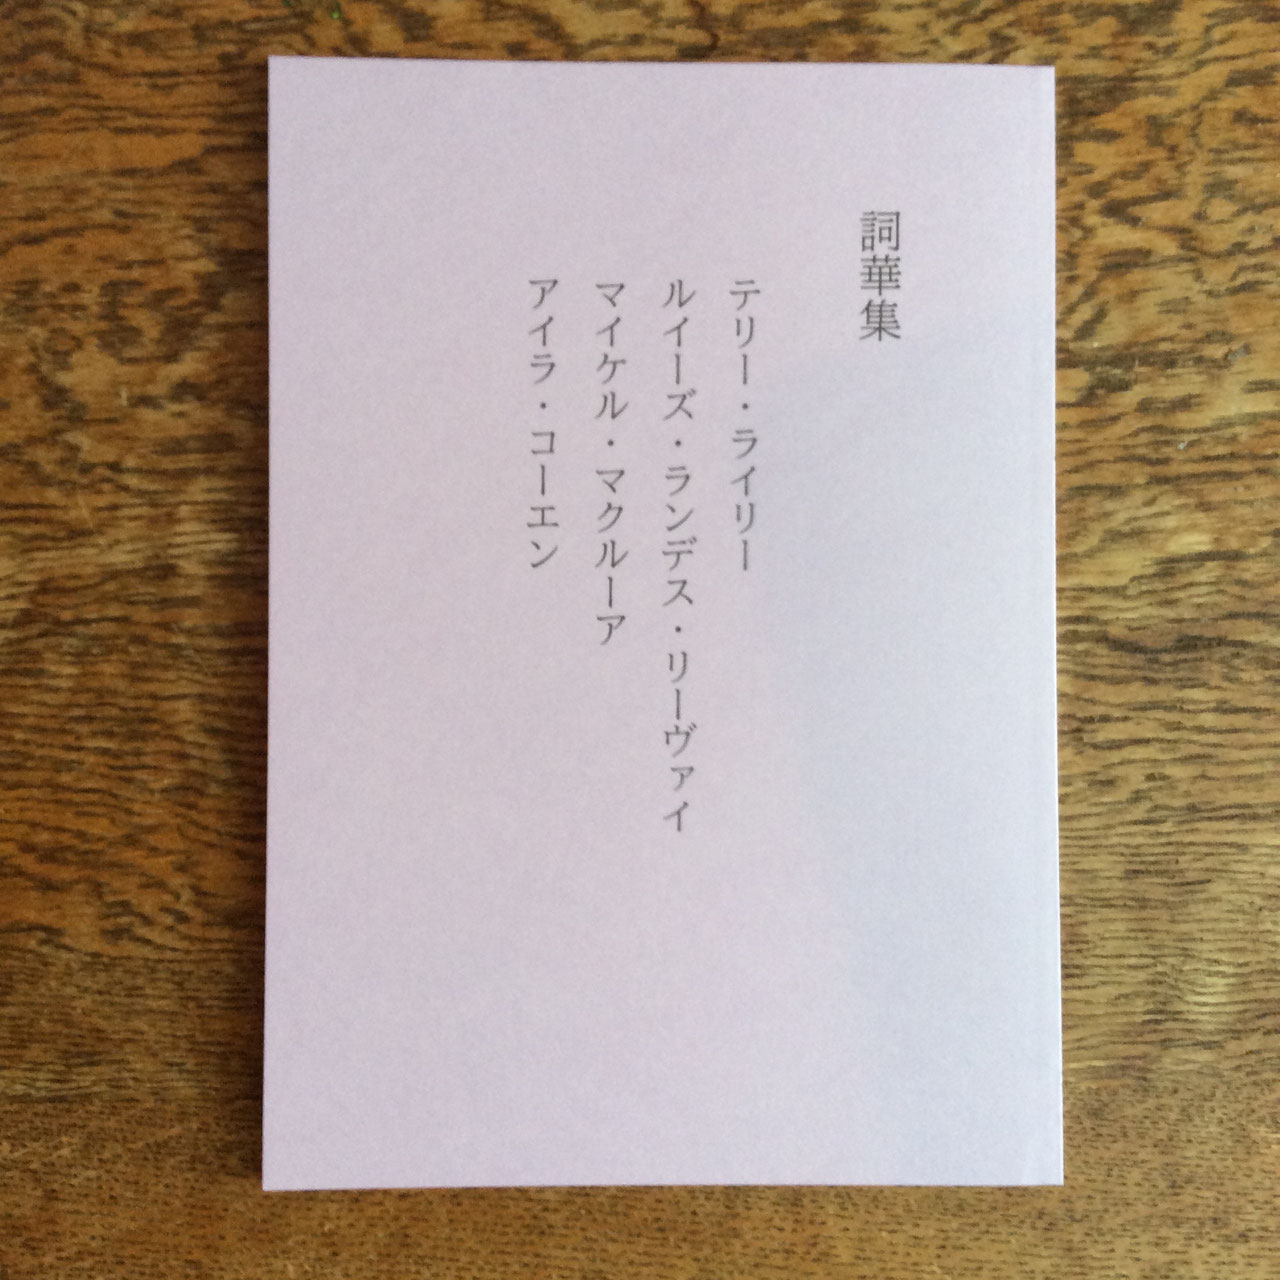 詞華集
テリー・ライリー
ルイーズ・ランデス・リーヴァイ
マイケル・マクルーア
アイラ・コーエン